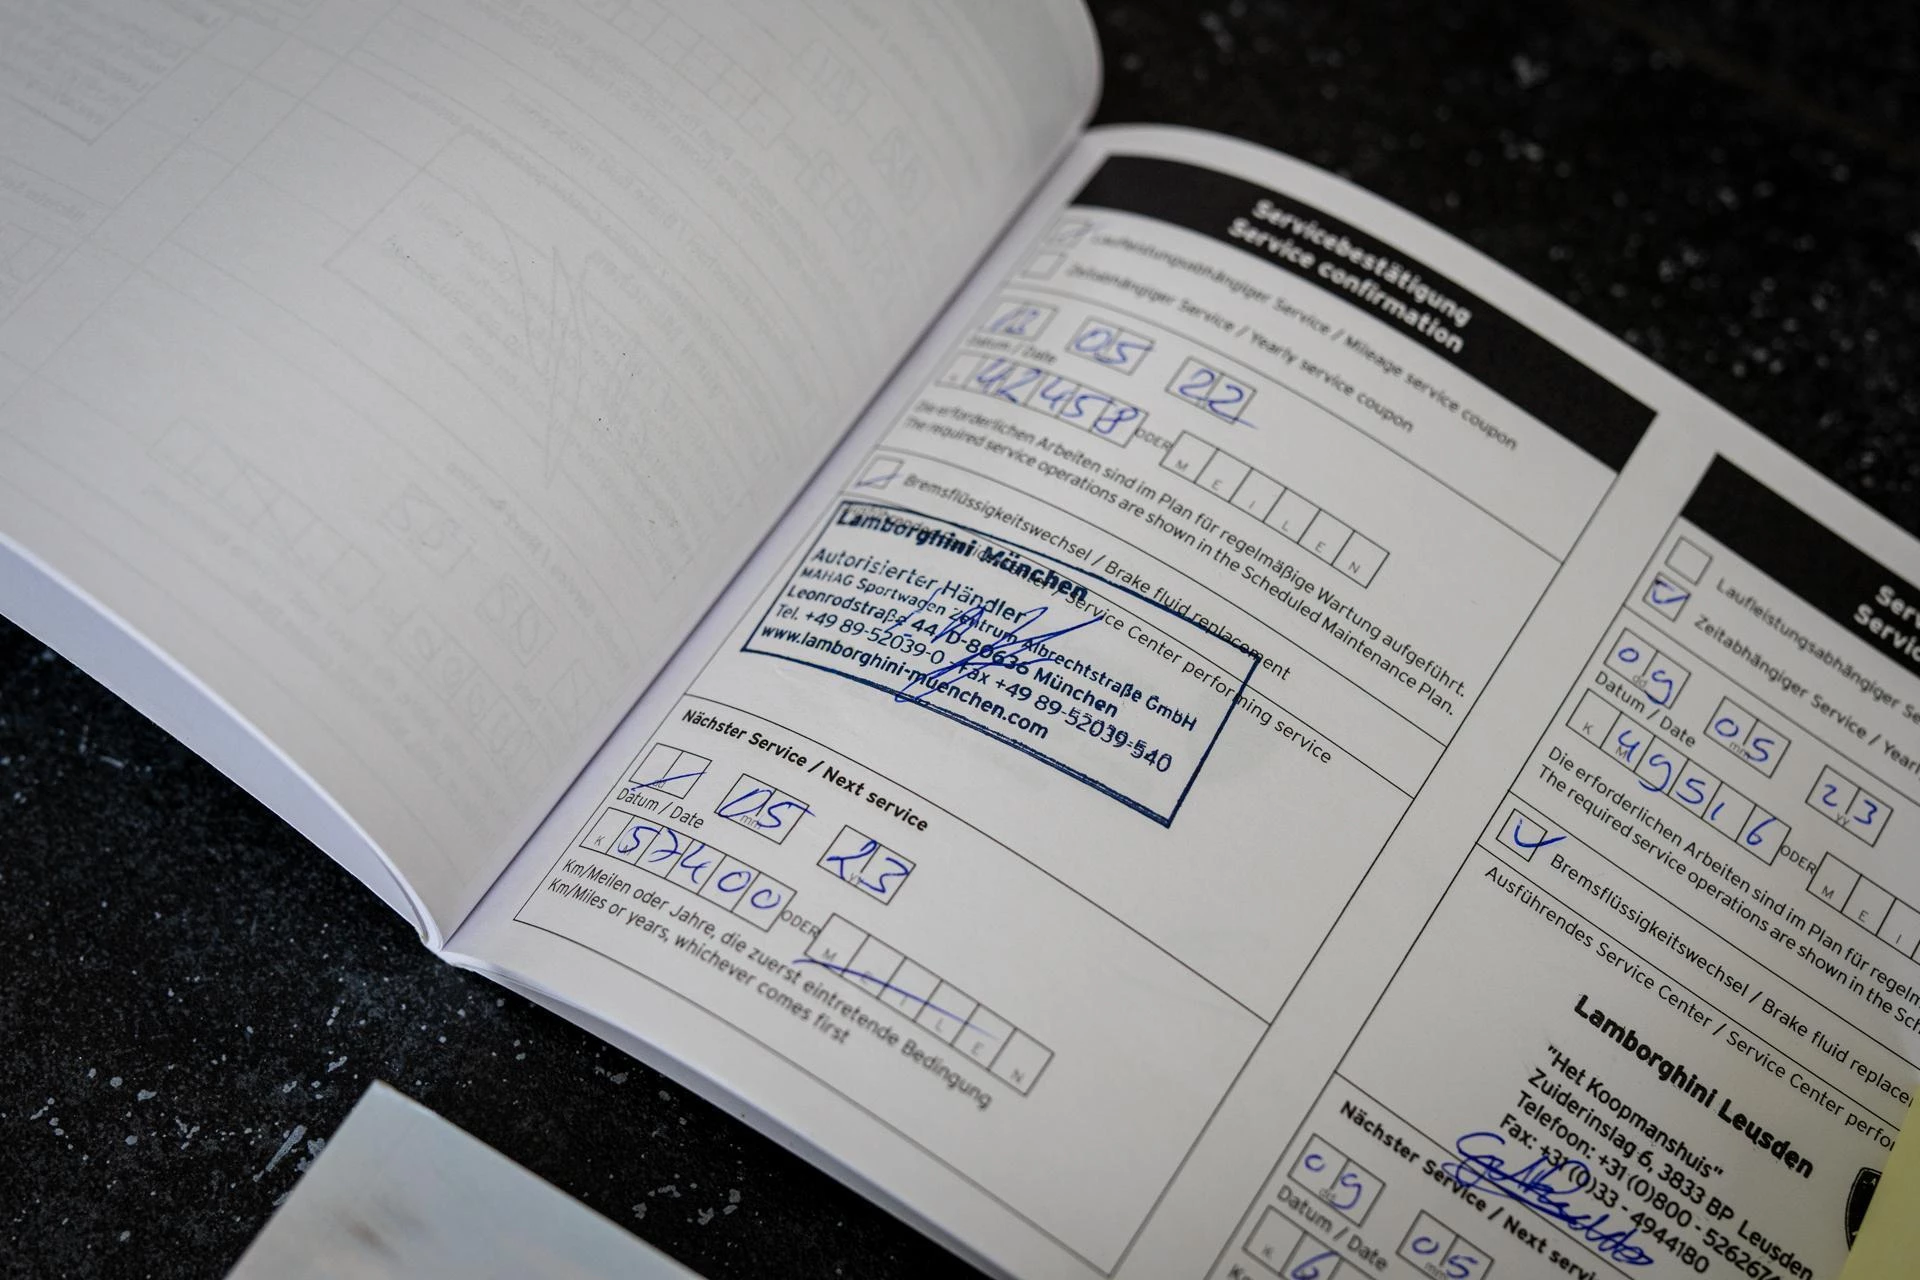 Servicebestätigung
Service confirmation
Laufleistungsabhängiger Service / Mileage service coupon
Zeitabhängiger Service / Yearly service coupon
05 22
Datum / Date
42458 ODER M E I L E N
Die erforderlichen Arbeiten sind im Plan für regelmäßige Wartung aufgeführt.
The required service operations are shown in the Scheduled Maintenance Plan.
Bremsflüssigkeitswechsel / Brake fluid replacement
Service Center performing service
Lamborghini München
Autorisierter Händler
MAHAG Sportwagen Zentrum Albrechtstraße GmbH
Leonrodstraße 44, D-80636 München
Tel. +49 89-52039-0 Fax +49 89-52039-540
www.lamborghini-muenchen.com
Nächster Service / Next service
dd 05 mm 23
Datum / Date
K 57400 ODER M E I L E N
Km/Meilen oder Jahre, die zuerst eintretende Bedingung
Km/Miles or years, whichever comes first
Laufleistungsabhängiger
Zeitabhängiger Service
09 dd 05 mm 23 yy
Datum / Date
K M 49516 ODER M E I
Die erforderlichen Arbeiten sind im Plan für
The required service operations are shown in the
Bremsflüssigkeitswechsel / Brake fluid
Ausführendes Service Center / Service Center
Lamborghini Leusden
"Het Koopmanshuis"
Zuiderinslag 6, 3833 BP Leusden
Telefoon: +31 (0)800 - 526267
Fax: +31 (0)33 - 4944180
Nächster Service / Next
09 dd 05
Datum / Date
K 6